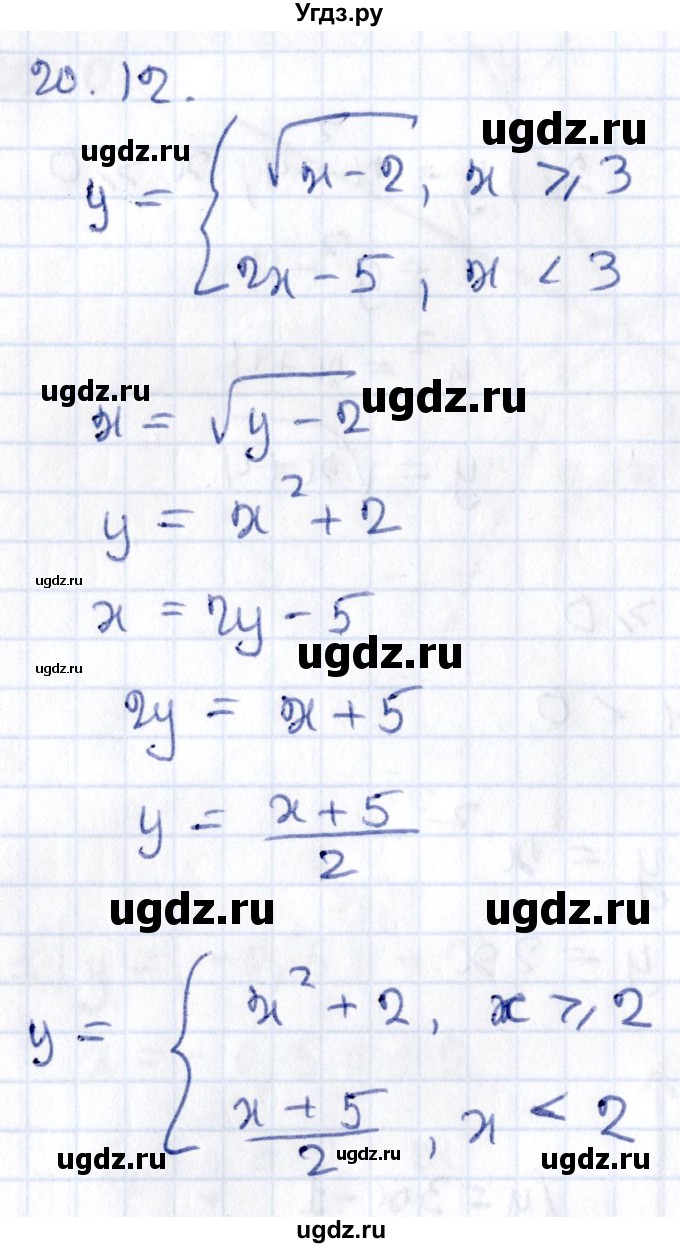 Угдз.ру
20.12.
ugdz.ru
ugdz.ru
y = { √(x-2), x ⩾ 3
2x - 5, x < 3
ugdz.ru
ugdz.ru
x = √(y-2)
y = x² + 2
ugdz.ru
x = 2y - 5
ugdz.ru
ugdz.ru
2y = x + 5
y = (x+5)/2
ugdz.ru
ugdz.ru
y = { x² + 2, x ⩾ 2
(x+5)/2, x < 2
ugdz.ru
ugdz.ru
ugdz.ru
ugdz.ru